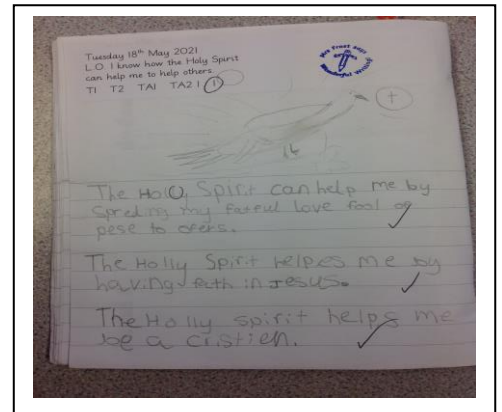 Tuesday 18th May 2021
L.O. I know how the Holy Spirit
can help me to help others.
T1 T2 TA1 TA2 1 I
Mrs Frost says
Wonderful Writing
The Holy Spirit can help me by
Spreding my fateful love fool of
pese to ofers.
The Holly Spirit helpes me by
having faith in Jesus.
The Holly spirit helps me
be a cristien.